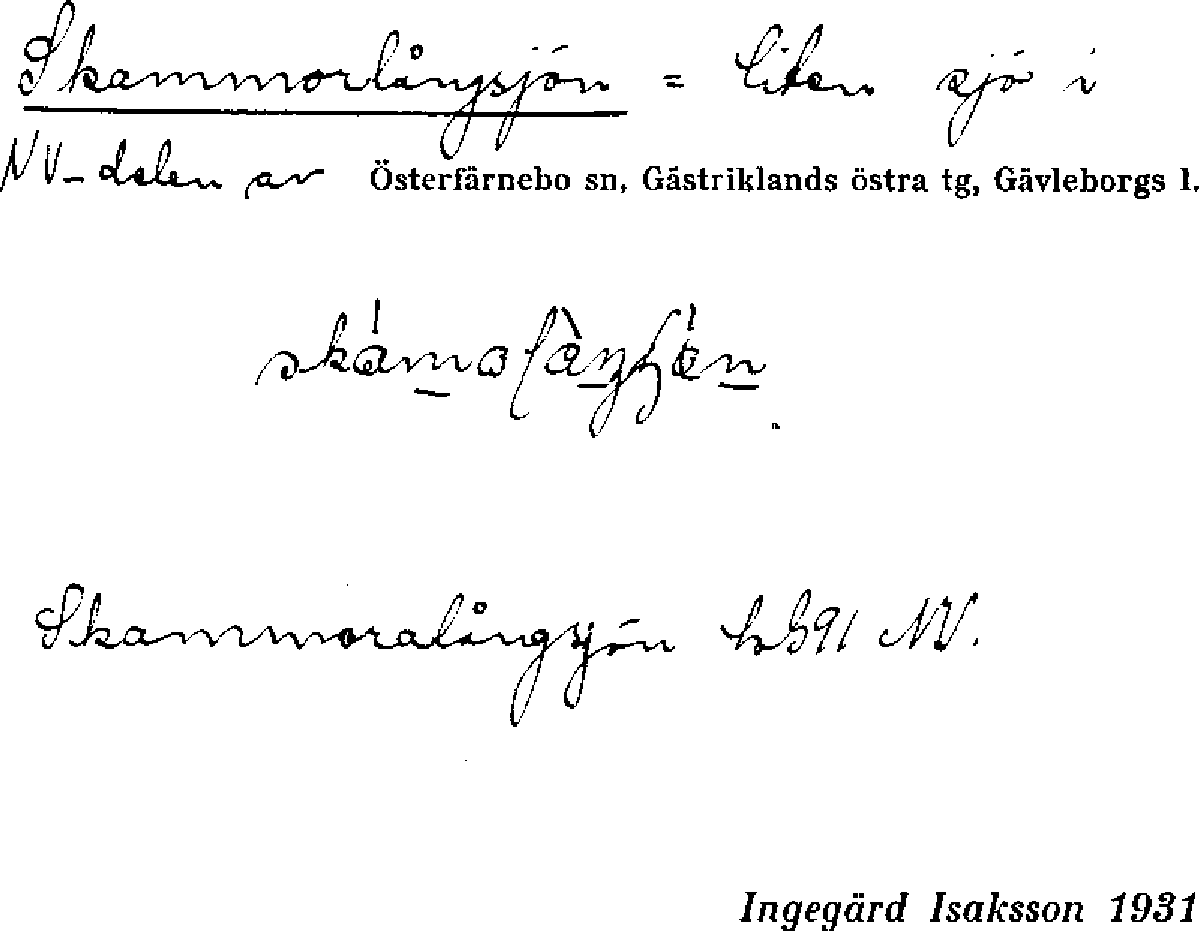 Skammorlångsjön = liten sjö i
NV-delen av Österfärnebo sn, Gästriklands östra tg, Gävleborgs l.
Skammoralångsjön NV.
Ingegärd Isaksson 1931